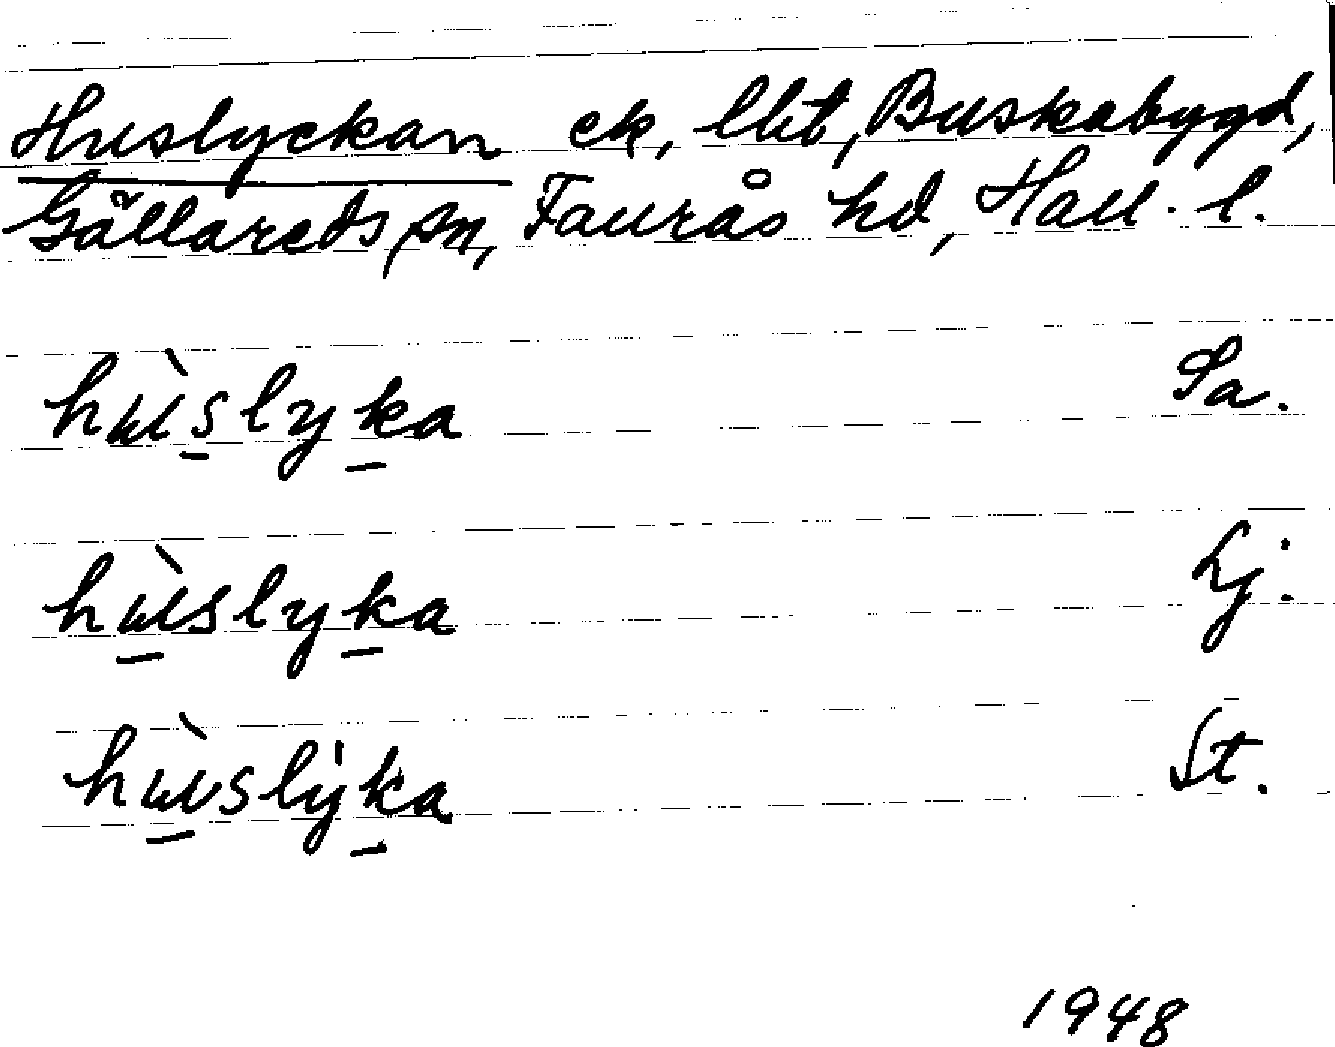 Huslyckan ck, lht, Buskabygd,
Gällareds sn, Faurås hd, Hall. l.
hùslyka Sa.
hùslyka Lj.
hùslẏka St.
1948